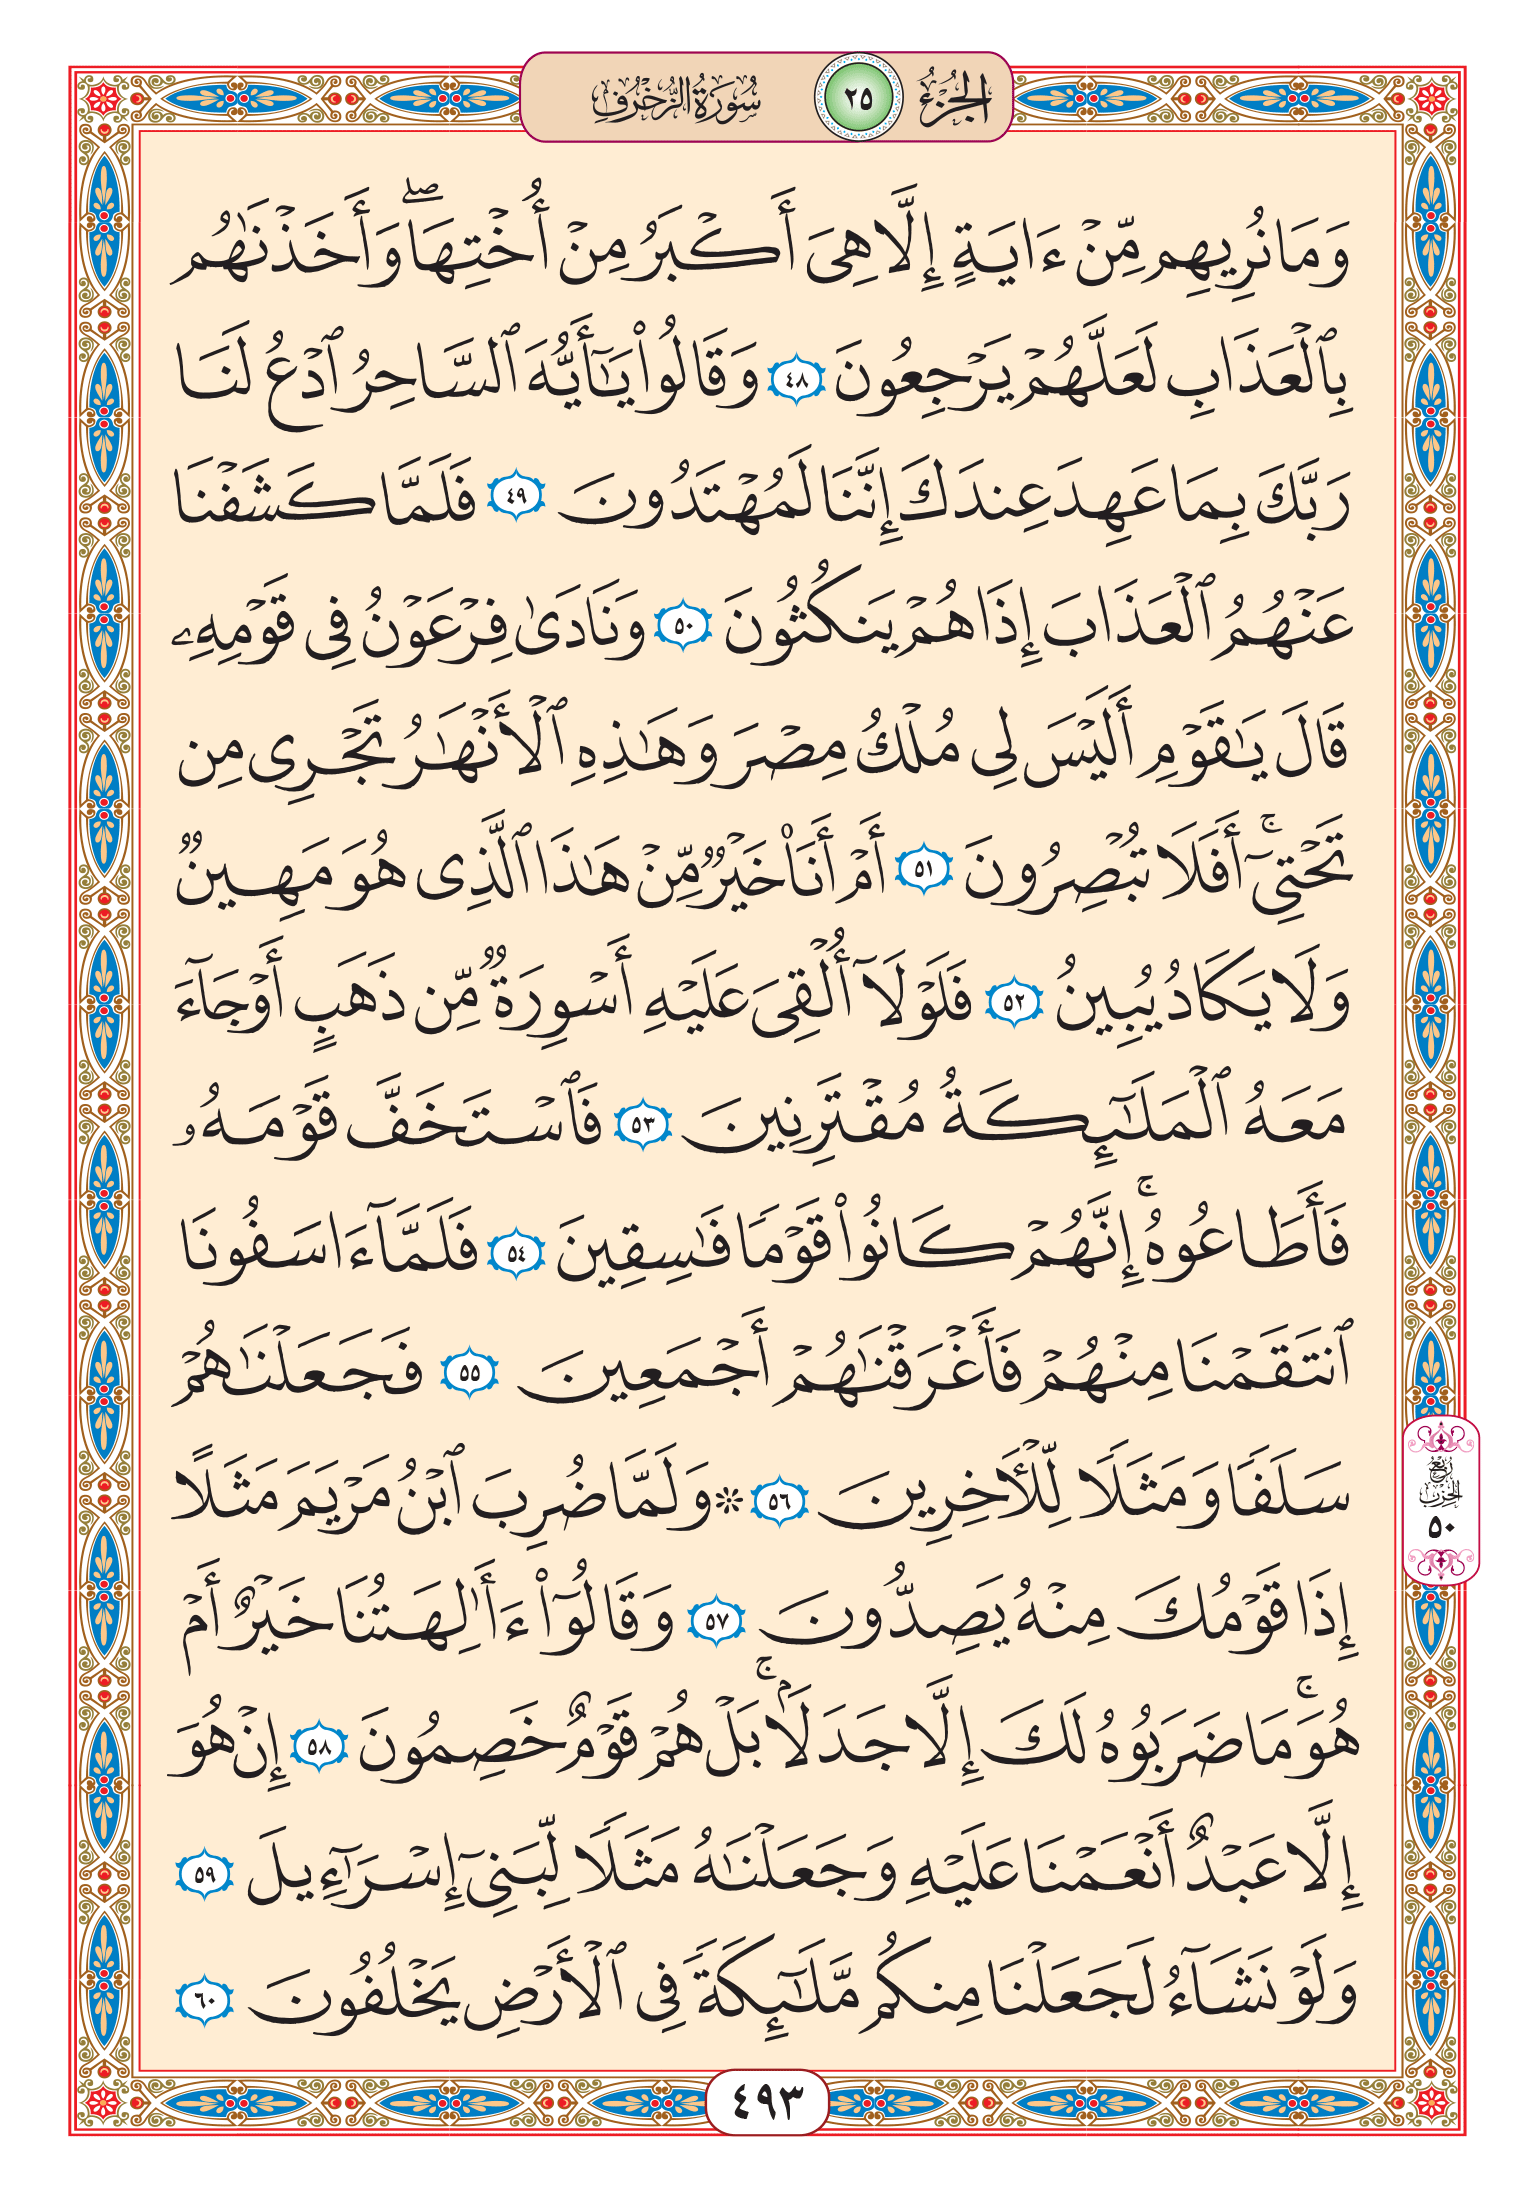 الجزء ٢٥ سورة الزخرف
وَمَا نُرِيهِم مِّنْ ءَايَةٍ إِلَّا هِىَ أَكْبَرُ مِنْ أُخْتِهَا ۖ وَأَخَذْنَٰهُم
بِٱلْعَذَابِ لَعَلَّهُمْ يَرْجِعُونَ ٤٨ وَقَالُوا۟ يَٰٓأَيُّهَ ٱلسَّاحِرُ ٱدْعُ لَنَا
رَبَّكَ بِمَا عَهِدَ عِندَكَ إِنَّنَا لَمُهْتَدُونَ ٤٩ فَلَمَّا كَشَفْنَا
عَنْهُمُ ٱلْعَذَابَ إِذَا هُمْ يَنكُثُونَ ٥٠ وَنَادَىٰ فِرْعَوْنُ فِى قَوْمِهِۦ
قَالَ يَٰقَوْمِ أَلَيْسَ لِى مُلْكُ مِصْرَ وَهَٰذِهِ ٱلْأَنْهَٰرُ تَجْرِى مِن
تَحْتِىٓ ۚ أَفَلَا تُبْصِرُونَ ٥١ أَمْ أَنَا۠ خَيْرٌ مِّنْ هَٰذَا ٱلَّذِى هُوَ مَهِينٌ
وَلَا يَكَادُ يُبِينُ ٥٢ فَلَوْلَآ أُلْقِىَ عَلَيْهِ أَسْوِرَةٌ مِّن ذَهَبٍ أَوْ جَآءَ
مَعَهُ ٱلْمَلَٰٓئِكَةُ مُقْتَرِنِينَ ٥٣ فَٱسْتَخَفَّ قَوْمَهُۥ
فَأَطَاعُوهُ ۚ إِنَّهُمْ كَانُوا۟ قَوْمًا فَٰسِقِينَ ٥٤ فَلَمَّآ ءَاسَفُونَا
ٱنتَقَمْنَا مِنْهُمْ فَأَغْرَقْنَٰهُمْ أَجْمَعِينَ ٥٥ فَجَعَلْنَٰهُمْ
سَلَفًا وَمَثَلًا لِّلْءَاخِرِينَ ٥٦ ۞ وَلَمَّا ضُرِبَ ٱبْنُ مَرْيَمَ مَثَلًا
إِذَا قَوْمُكَ مِنْهُ يَصِدُّونَ ٥٧ وَقَالُوٓا۟ ءَأَٰلِهَتُنَا خَيْرٌ أَمْ
هُوَ ۚ مَا ضَرَبُوهُ لَكَ إِلَّا جَدَلًۢا ۚ بَلْ هُمْ قَوْمٌ خَصِمُونَ ٥٨ إِنْ هُوَ
إِلَّا عَبْدٌ أَنْعَمْنَا عَلَيْهِ وَجَعَلْنَٰهُ مَثَلًا لِّبَنِىٓ إِسْرَٰٓءِيلَ ٥٩
وَلَوْ نَشَآءُ لَجَعَلْنَا مِنكُم مَّلَٰٓئِكَةً فِى ٱلْأَرْضِ يَخْلُفُونَ ٦٠
ربع
الحزب
٥٠
٤٩٣